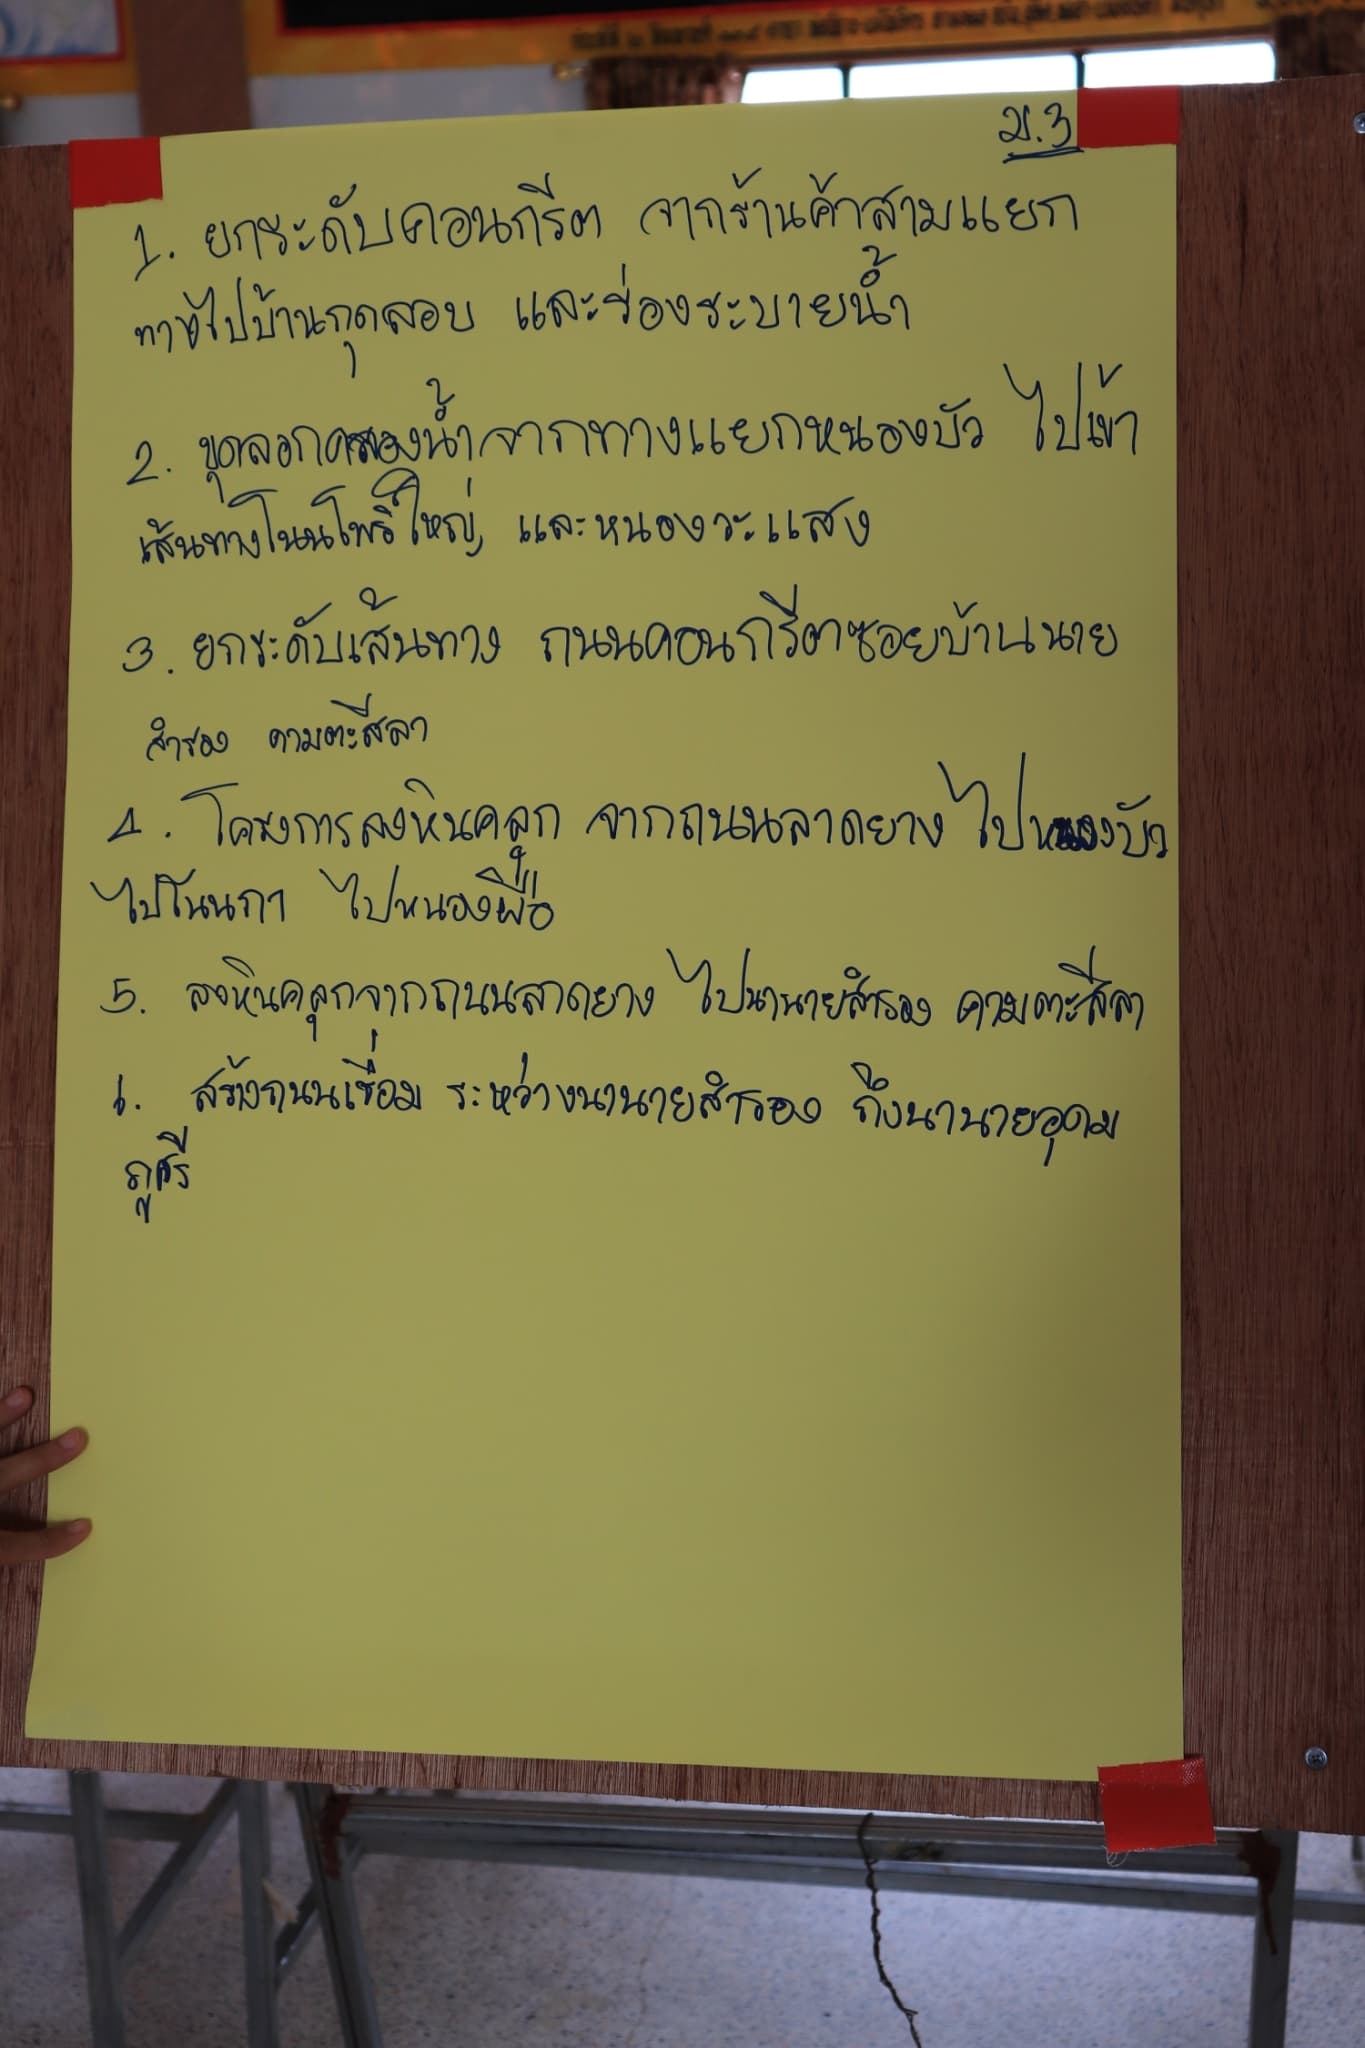 ม.3
1. ยกระดับคอนกรีต จากร้านค้าสามแยก
ทางไปบ้านกุดสอบ และช่องระบายน้ำ
2. ขุดลอกคลองน้ำจากทางแยกหนองบัว ไปเข้า
เส้นทางโนนโพธิ์ใหญ่ และหนองวะแสง
3. ยกระดับเส้นทาง ถนนคอนกรีตซอยบ้านนาย
สำรอง คามตะสีลา
4. โครงการลงหินคลุก จากถนนลาดยาง ไปหนองบัว
ไปโนนกา ไปหนองผือ
5. ลงหินคลุกจากถนนลาดยาง ไปนานายสำรอง คามตะสีลา
6. สร้างถนนเชื่อม ระหว่างนานายสำรอง ถึงนานายอุดม
ภูศรี